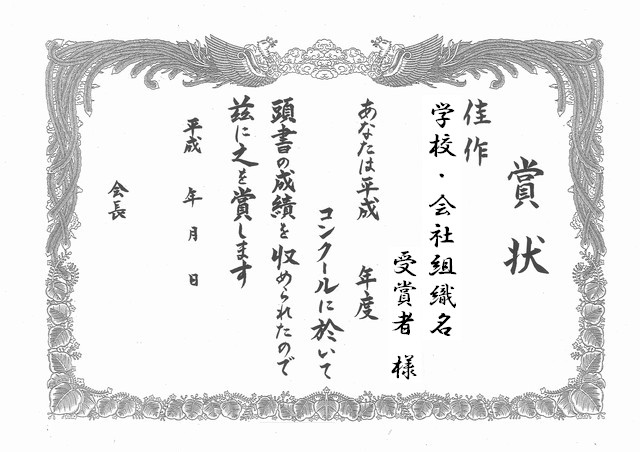 賞状
佳作
学校・会社組織名
受賞者 様
あなたは平成 年度
コンクールに於いて
頭書の成績を収められたので
玆に之を賞します
平成 年 月 日
会長